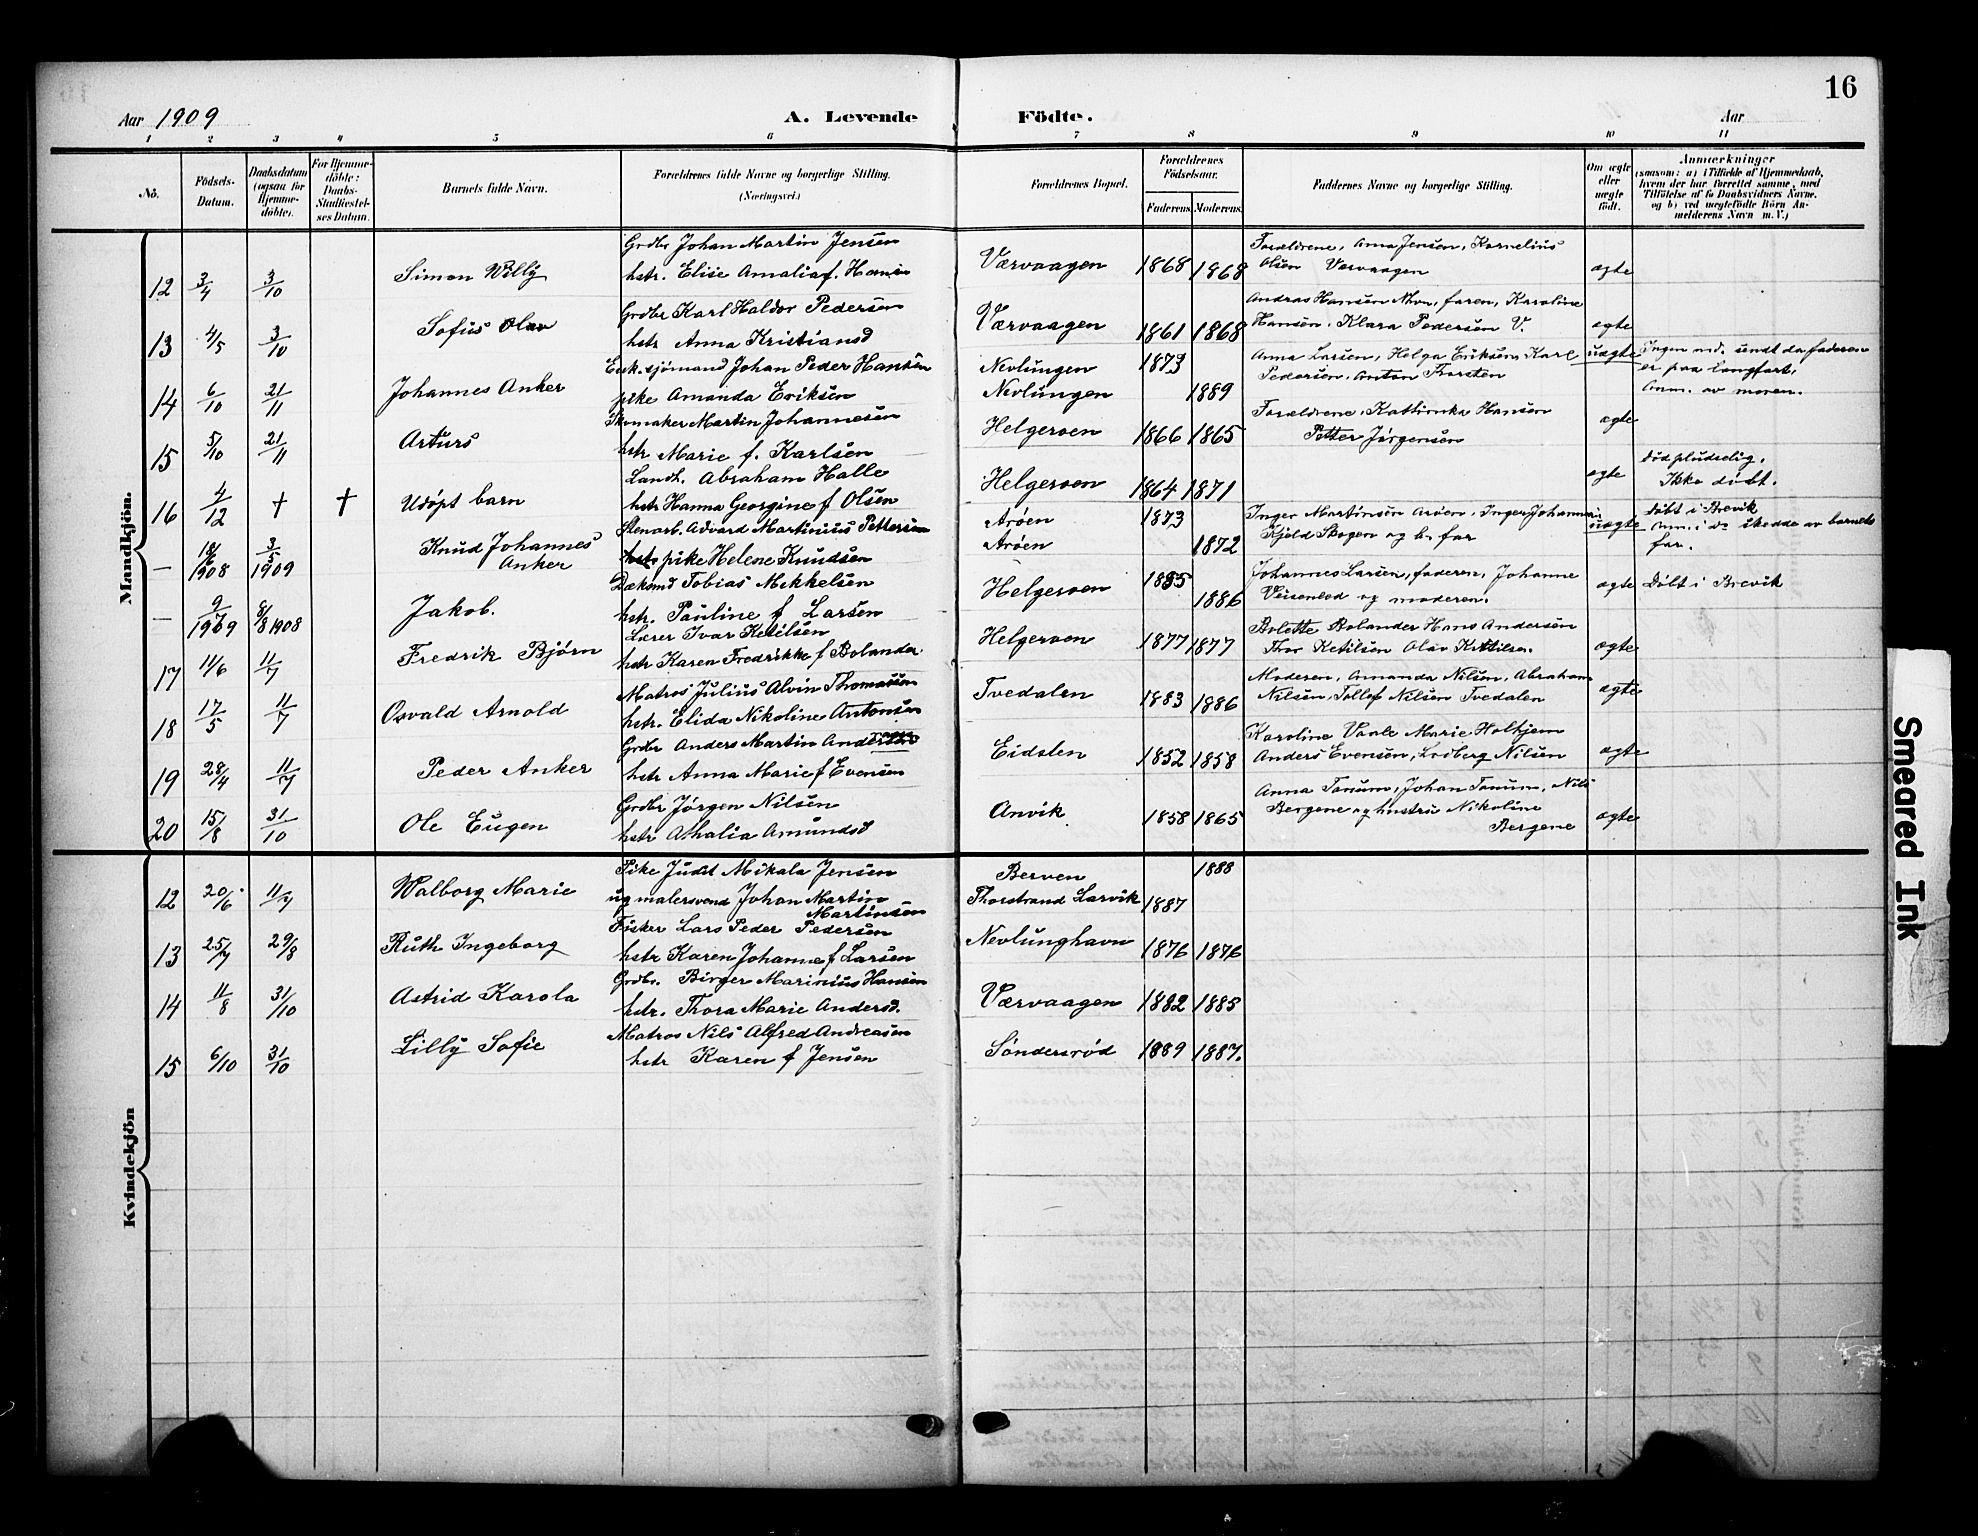 16
Aar 1909 A. Levende Födte. Aar
1 2 3 4 5 6 7 8 9 10 11
No.
Födsels-
Datum.
Daabsdatum
(ogsaa for
Hjemme-
döbte).
For Hjemme-
döbte:
Daabs-
Stadfæstel-
ses Datum.
Barnets fulde Navn.
Forældrenes fulde Navne og borgerlige Stilling.
(Næringsvei.)
Forældrenes Bopæl.
Forældrenes
Födselsaar.
Faderens. Moderens.
Faddernes Navne og borgerlige Stilling.
Om ægte
eller
uægte
födt.
Anmærkninger
(saasom: a) i Tilfælde af Hjemmedaab,
hvem der har forrettet samme, med
Tilföielse af to Daabsvidners Navne.
og b) ved uægtefödte Börn An-
melderens Navn m. V.)
Mandkjön.
Grdbr Johan Martin Jensen
12 3/4 3/10 Simon Willy hstr. Elise Amalia f. Hansen Værvaagen 1868 1868
Forældrene, Anna Jensen, Kornelius
Olsen Værvaagen ægte
Grdbr Karl Haldor Pedersen
13 4/5 3/10 Sofus Olav hstr Anna Kristiansd Værvaagen 1861 1868
Andras Hansen Nhvn, faren, Karoline
Hansen, Klara Pedersen V. ægte
Enk. sjömand Johan Peder Hansen Nevlungen 1873
14 6/10 21/11 Johannes Anker pike Amanda Eriksen Nevlungen 1889
Anna Larsen, Helga Eriksen, Karl
Pedersen, Anton Thorsten uægte
Ingen md. sendt da faderen
er paa langfart,
Anm. av moren.
Skomaker Martin Johannesen
15 5/10 21/11 Arturs hstr Marie f. Karlsen Helgeroen 1866 1865
Forældrene, Kathinka Hansen
Petter Jørgensen ægte
Landh. Abraham Halle
16 4/12 † † Udøpt barn hstr Hanna Georgine f Olsen Helgeroen 1864 1871 ægte
død pludselig.
Ikke døbt.
Stenarb. Advard Martinius Pettersen Arøen 1873
— 18/6 1908 3/5 1909 Knud Johannes
Anker
hstr pike Helene Knudsen Arøen 1872
Inger Martinsen Arøen, Inger Johannesen
Kjeld Skogen og b. far uægte
Døbt i Brevik
nm. i de skedde av barnets
far.
Dæksmd Tobias Mikkelsen
— 9/6 1909 8/8 1908 Jakob. hstr. Pauline f Larsen Helgeroen 1885 1886
Johannes Larsen, faderen, Johanne
og moderen. ægte Døbt i Brevik
Lærer Ivar Ketilsen
17 11/6 11/7 Fredrik Bjørn hstr Karen Fredrikke f Bolander Helgeroen 1877 1877
Bolette Bolander Hans Andersen
Thor Ketilsen Olav Kittilsen ægte
Matros Julius Alvin Thomassen
18 17/5 11/7 Osvald Arnold hstr. Elida Nikoline Antonsen Tvedalen 1883 1886
Moderen, Amanda Nilsen, Abraham
Nilsen, Tollef Nilsen Tvedalen ægte
Grdbr Anders Martin Andersen
19 28/4 11/7 Peder Anker hstr Anna Marie f Evensen Eidsten 1852 1858
Karoline Vaale Marie Holtjem
Anders Evensen, Lodberg Nilsen ægte
Grdbr Jørgen Nilsen
20 15/8 31/10 Ole Eugen hstr Athalia Amundsd Anvik 1858 1865
Anna Tanum, Johan Tanum, Nils
Bergene og hustru Nikoline
Bergene ægte
Kvindekjön
Pike Judit Mikala Jensen Berven 1888
12 20/6 11/7 Walborg Marie ug malersvend Johan Martin
Martinsen
Thorstrand Larvik 1887
Fisker Lars Peder Pedersen
13 25/7 29/8 Ruth Ingeborg hstr Karen Johanne f Larsen Nevlunghavn 1876 1876
Grdbr. Birger Marinius Hansen
14 11/8 31/10 Astrid Karola hstr. Thora Marie Andersd. Værvaagen 1882 1885
Matros Nils Alfred Andreasen
15 6/10 31/10 Lilly Sofie hstr Karen f Jensen Søndersrød 1889 1887.
Smeared Ink